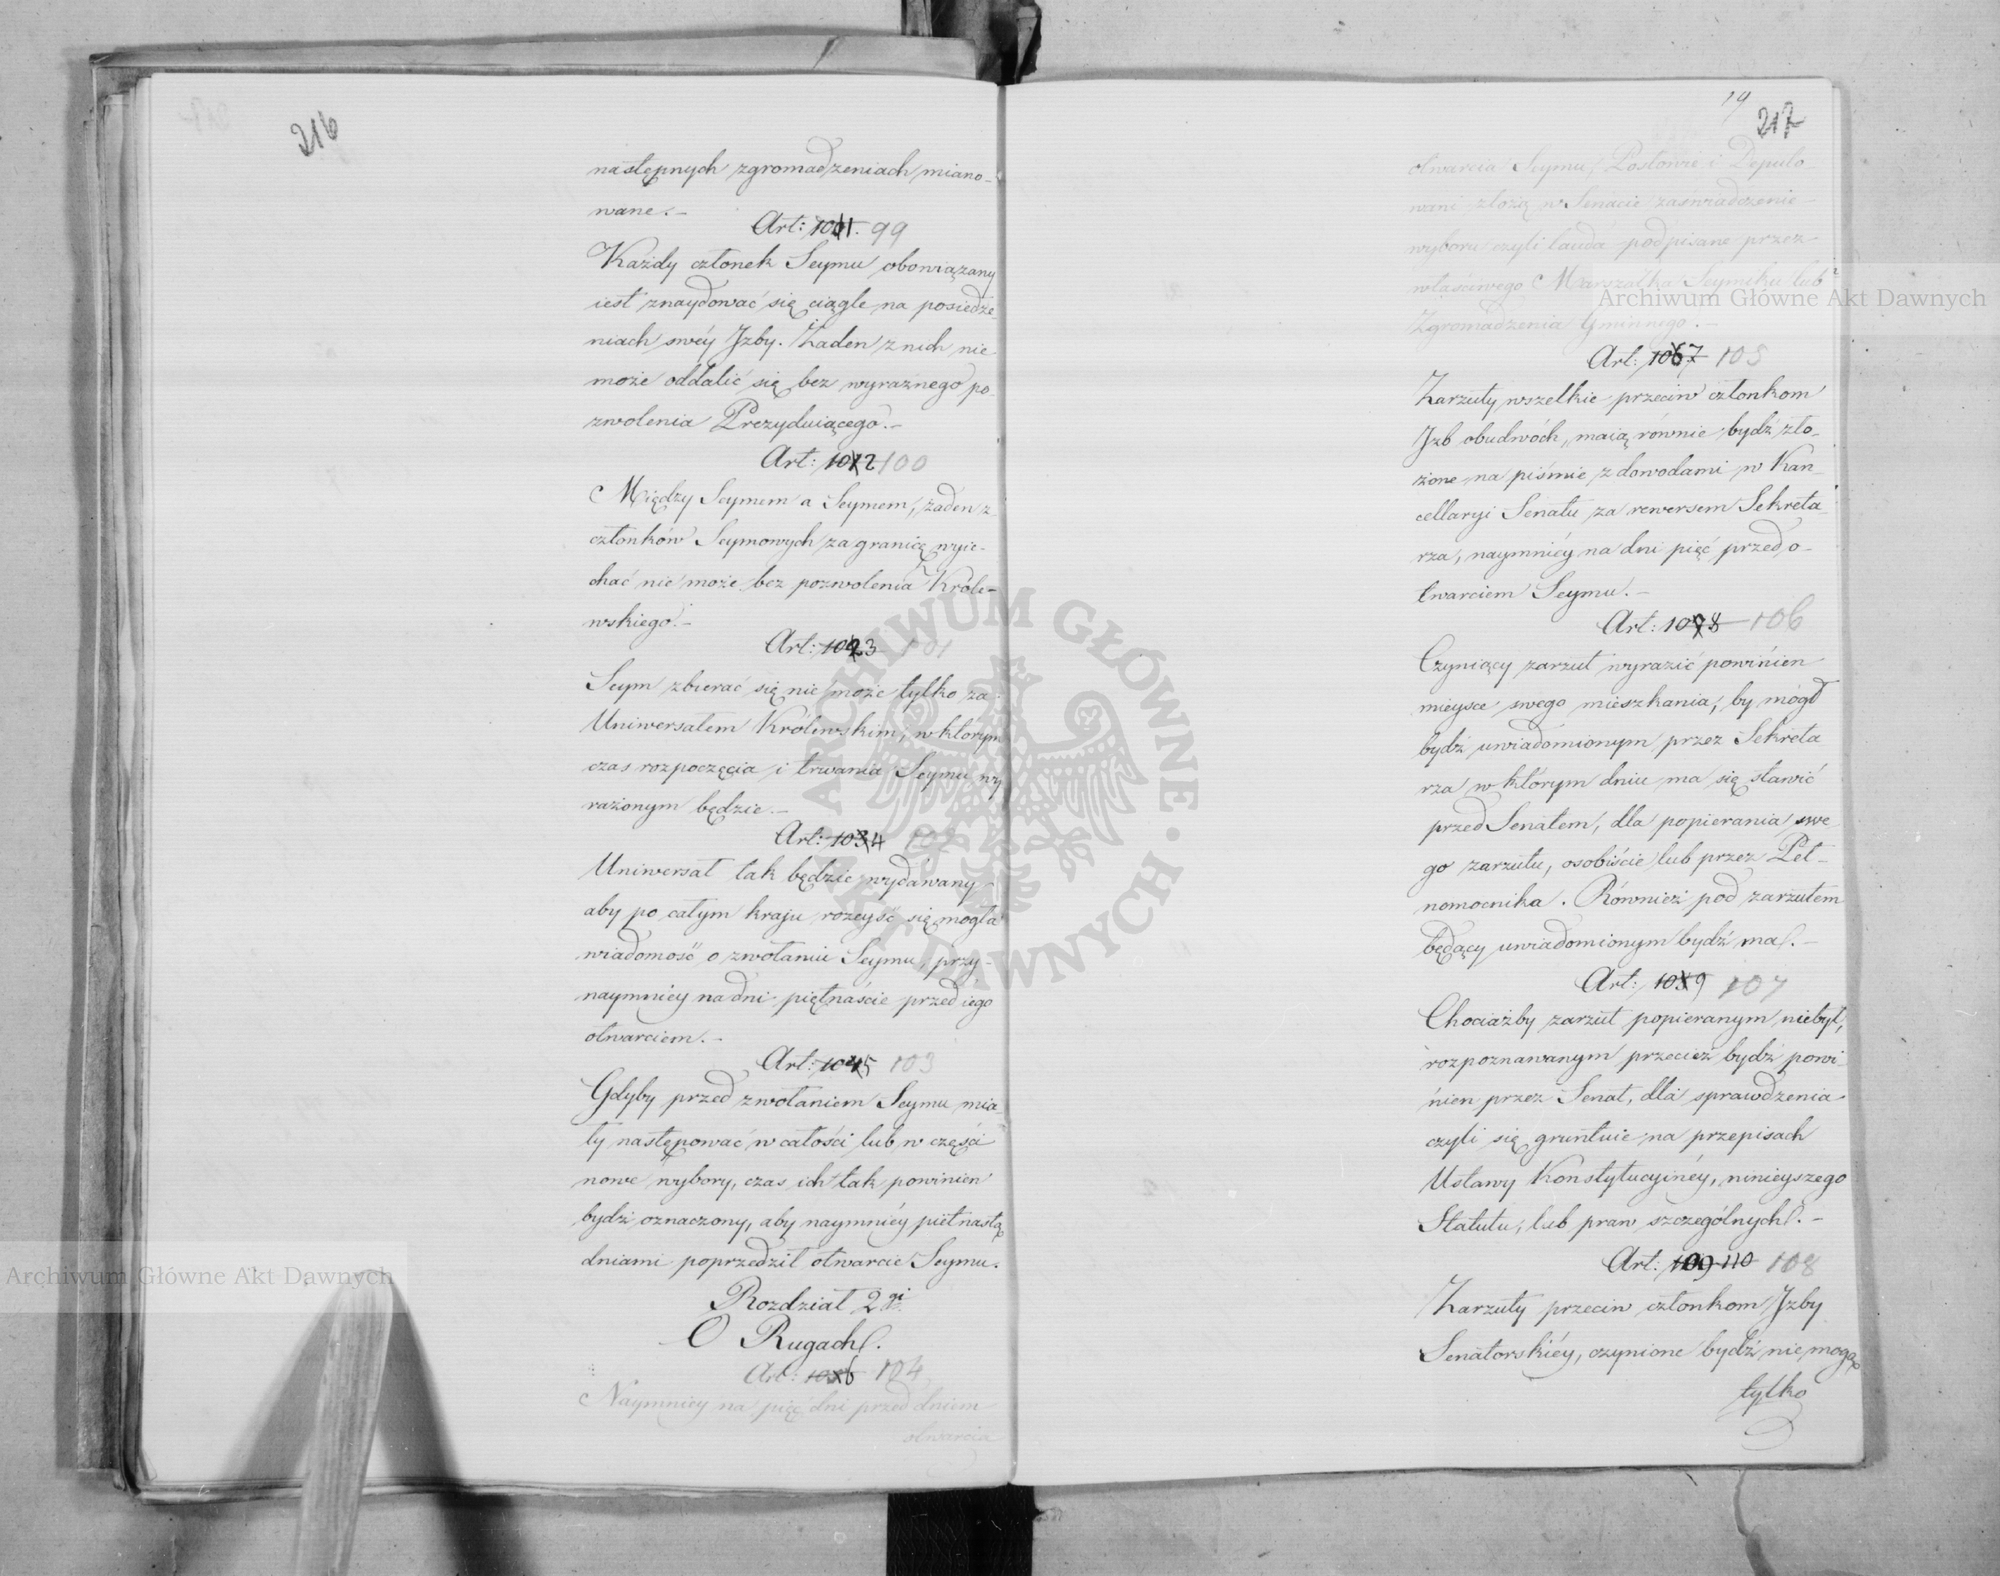 216
następnych zgromadzeniach miano-
wane.-
Art: 101. 99
Każdy członek Seymu obowiązany
iest znaydować się ciągle na posiedze-
niach swéy Izby. Żaden z nich nie
może oddalić się bez wyraźnego po-
zwolenia Prezyduiącego.-
Art: 102 100
Między Seymem a Seymem, żaden z
członków Seymowych za granicę wyie-
chać nie może bez pozwolenia Króle-
wskiego.-
Art: 103 101
Seym zbierać się nie może tylko za
Uniwersałem Królewskim, w którym
czas rozpoczęcia i trwania Seymu wy
rażonym będzie.-
Art: 104 102
Uniwersał tak będzie wydawany
aby po całym kraju rozeyść się mogła
wiadomość o zwołaniu Seymu, przy-
naymniéy na dni piętnaście przed iego
otwarciem.-
Art: 105 103
Gdyby przed zwołaniem Seymu mia-
ły następować w całości lub w części
nowe wybory, czas ich tak powinien
bydź oznaczony, aby naymniéy piętnastą
dniami poprzedził otwarcie Seymu.
Rozdział 2gi
O Rugach.
Art: 106 104
Naymniey na pięć dni przed dniem
otwarcia
19
217
otwarcia Seymu, Posłowie i Deputo-
wani złożą w Senacie zaświadczenie
wyboru czyli lauda podpisane przez
właściwego Marszałka Seymiku lub
Zgromadzenia Gminnego.-
Art: 107 105
Zarzuty wszelkie przeciw członkom
Izb obudwóch, maią równie bydź zło-
żone na piśmie z dowodami w Kan-
cellaryi Senatu za rewersem Sekreta-
rza, naymniéy na dni pięć przed o-
twarciem Seymu.-
Art: 108 106
Czyniący zarzut wyrazić powinien
mieysce swego mieszkania, by mógł
bydź uwiadomionym przez Sekreta
rza w którym dniu ma się stawić
przed Senatem, dla popierania swe-
go zarzutu, osobiście lub przez Peł-
nomocnika. Również pod zarzutem
będący uwiadomionym bydź ma.-
Art: 109 107
Chociażby zarzut popieranym niebył,
rozpoznawanym przecież bydź powi-
nien przez Senat, dla sprawdzenia
czyli się gruntuie na przepisach
Ustawy Konstytucyinéy, ninieyszego
Statutu, lub praw szczególnych.-
Art: 109 110 108
Zarzuty przeciw członkom Izby
Senatorskiéy, czynione bydź nie mogą
tylko
Archiwum Główne Akt Dawnych
Archiwum Główne Akt Dawnych
ARCHIWUM GŁÓWNE AKT DAWNYCH